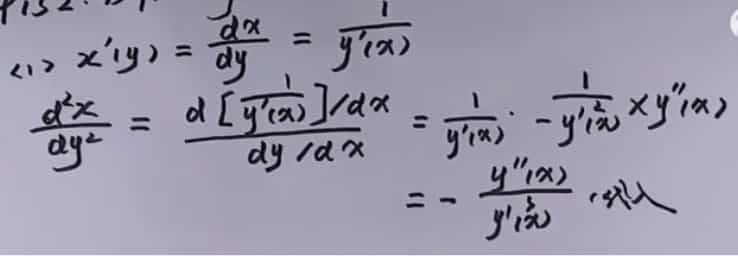 P152.
<1> x'(y) = dx/dy = 1/y'(x)
d²x/dy² = d[1/y'(x)]/dx / dy/dx = 1/y'(x) · -1/y'²(x) × y''(x)
= - y''(x)/y'³(x) . 代入